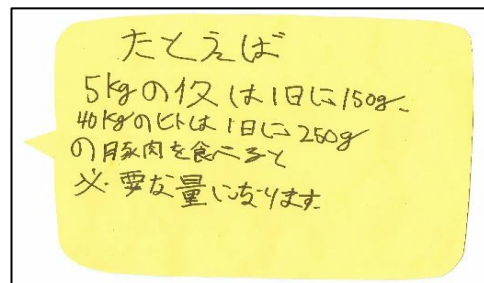 たとえば
5kgのイヌは1日に150g、
40kgのヒトは1日に250g
の豚肉を食べると
必要な量になります。